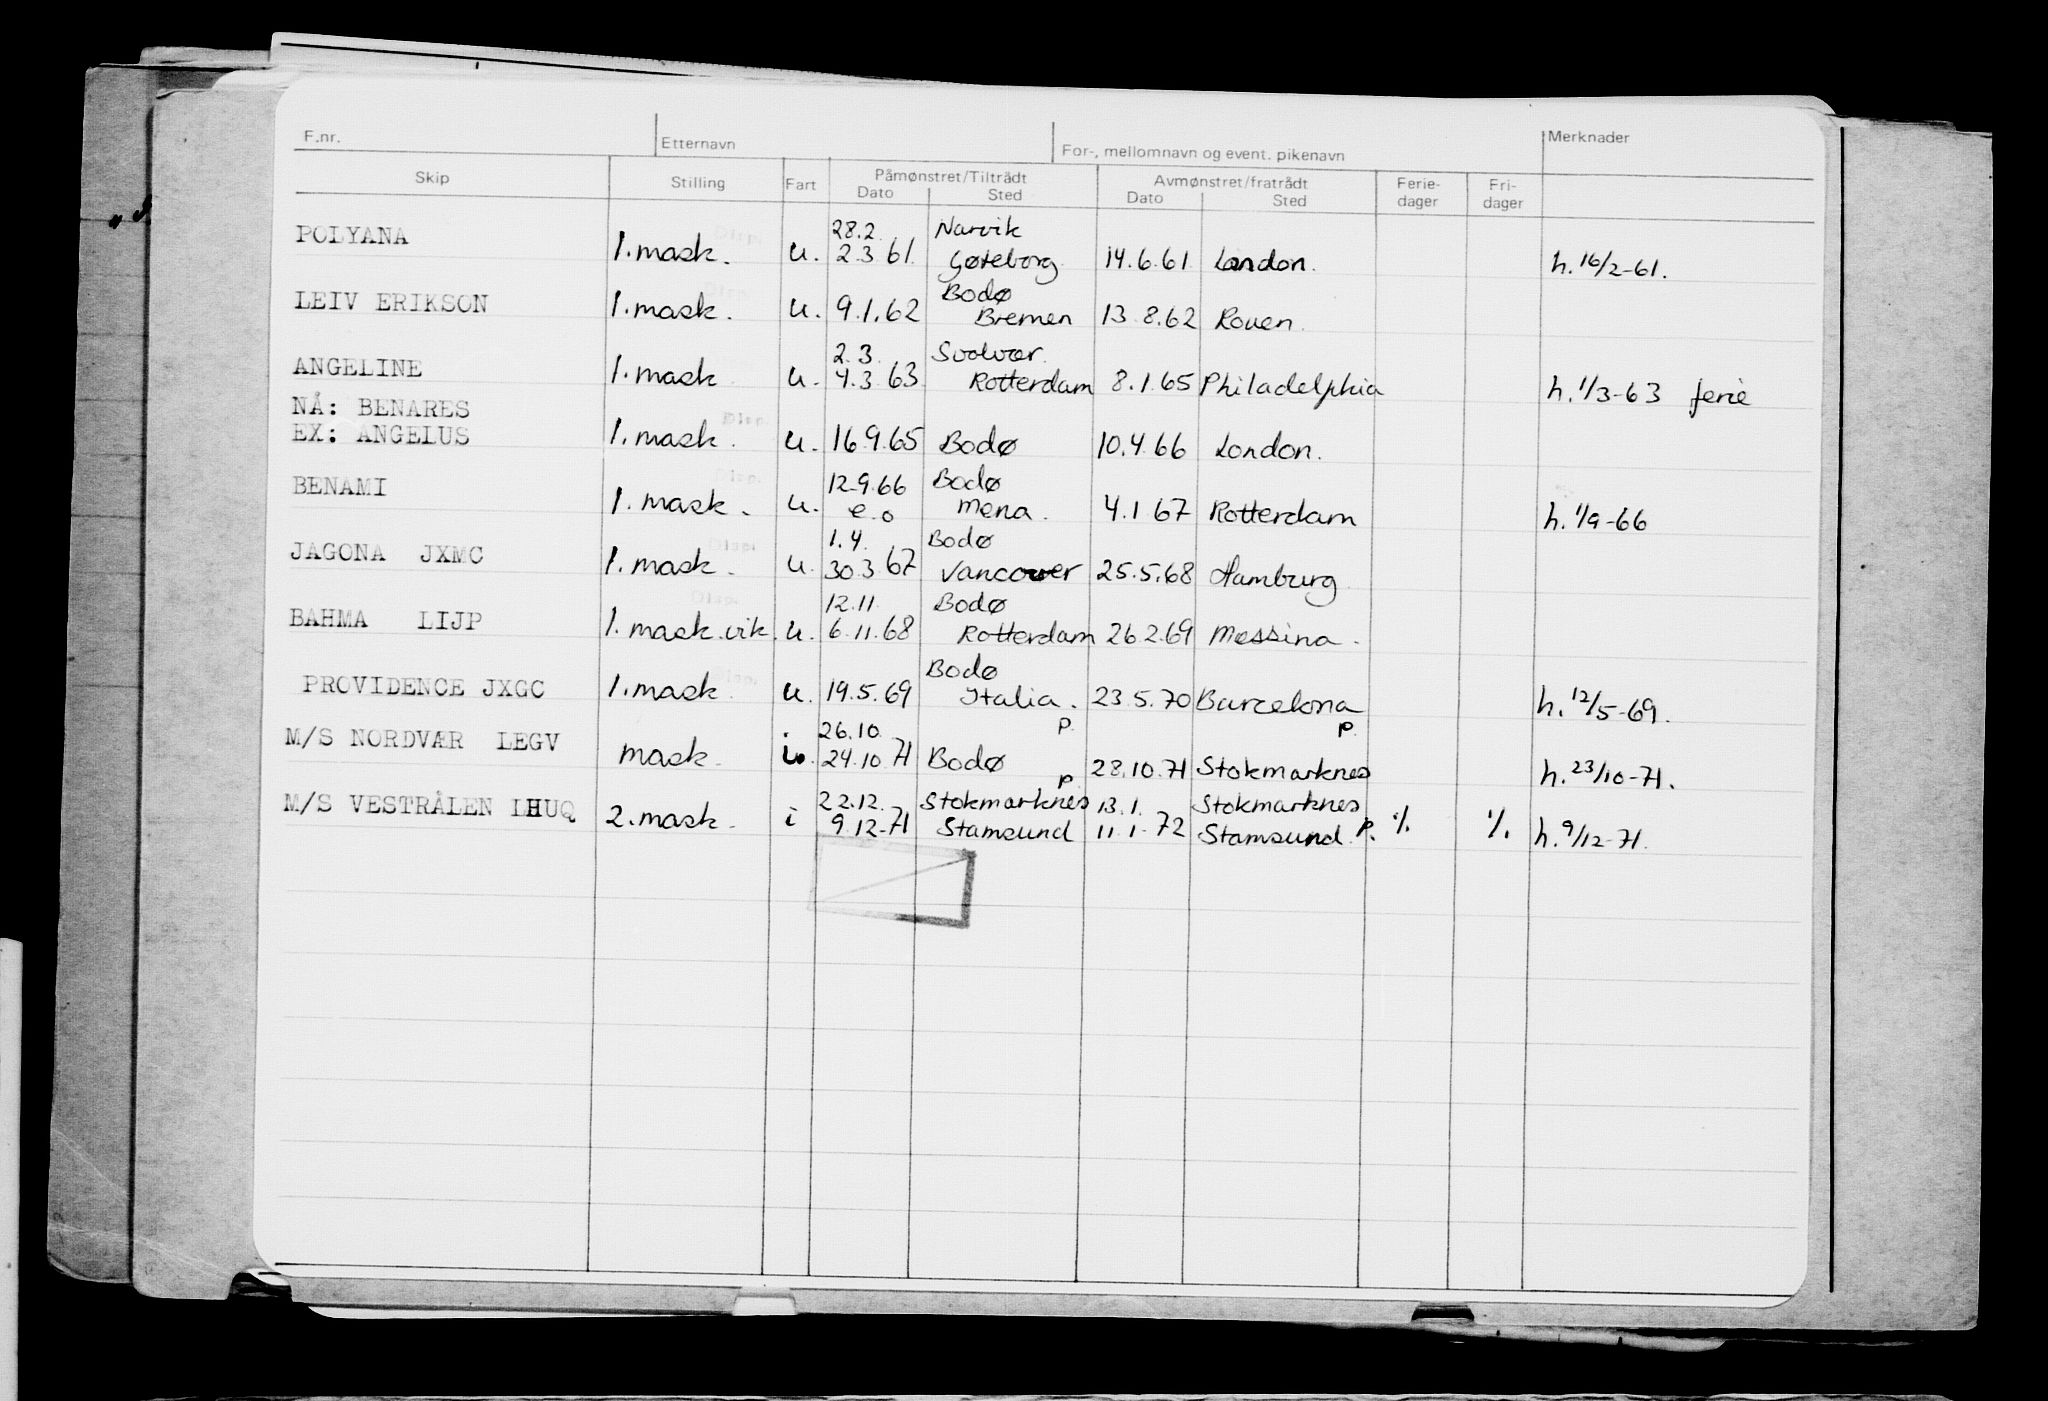 F.nr. Etternavn For-, mellomnavn og event. pikenavn Merknader
Skip Stilling Fart Påmønstret/Tiltrådt Avmønstret/fratrådt Ferie- Fri-
Dato Sted Dato Sted dager dager
28.2. Narvik
POLYANA 1. mask. u. 2.3 61. Gøteborg 14.6.61 London. h. 16/2-61.
Bodø
LEIV ERIKSON 1. mask. u. 9.1.62 Bremen 13.8.62 Rouen.
2.3. Svolvær.
ANGELINE 1. mask u. 4.3 63. Rotterdam 8.1.65 Philadelphia h. 1/3-63 ferie
NÅ: BENARES
EX: ANGELUS 1. mask. u. 16.9.65 Bodø 10.4.66 London.
12.9.66 Bodø
BENAMI 1. mask. u. e.o mena. 4.1 67 Rotterdam h. 1/9-66
1.4. Bodø
JAGONA JXMC 1. mask. u. 30.3 67 Vancouver 25.5.68 Hamburg
12.11. Bodø
BAHMA LIJP 1. mask.vik. u. 6.11.68 Rotterdam 26.2.69 Messina.
Bodø
PROVIDENCE JXGC 1. mask. u. 19.5.69 Italia. 23.5.70 Barcelona h. 12/5-69.
26.10. p. p.
M/S NORDVÆR LEGV mask. i. 24.10.71 Bodø 28.10.71 Stokmarknes h. 23/10-71.
p
22.12. Stokmarknes 13.1. Stokmarknes
M/S VESTRÅLEN LHUQ 2. mask. i 9.12.71 Stamsund 11.1.72 Stamsund. p. ./. ./. h. 9/12-71.